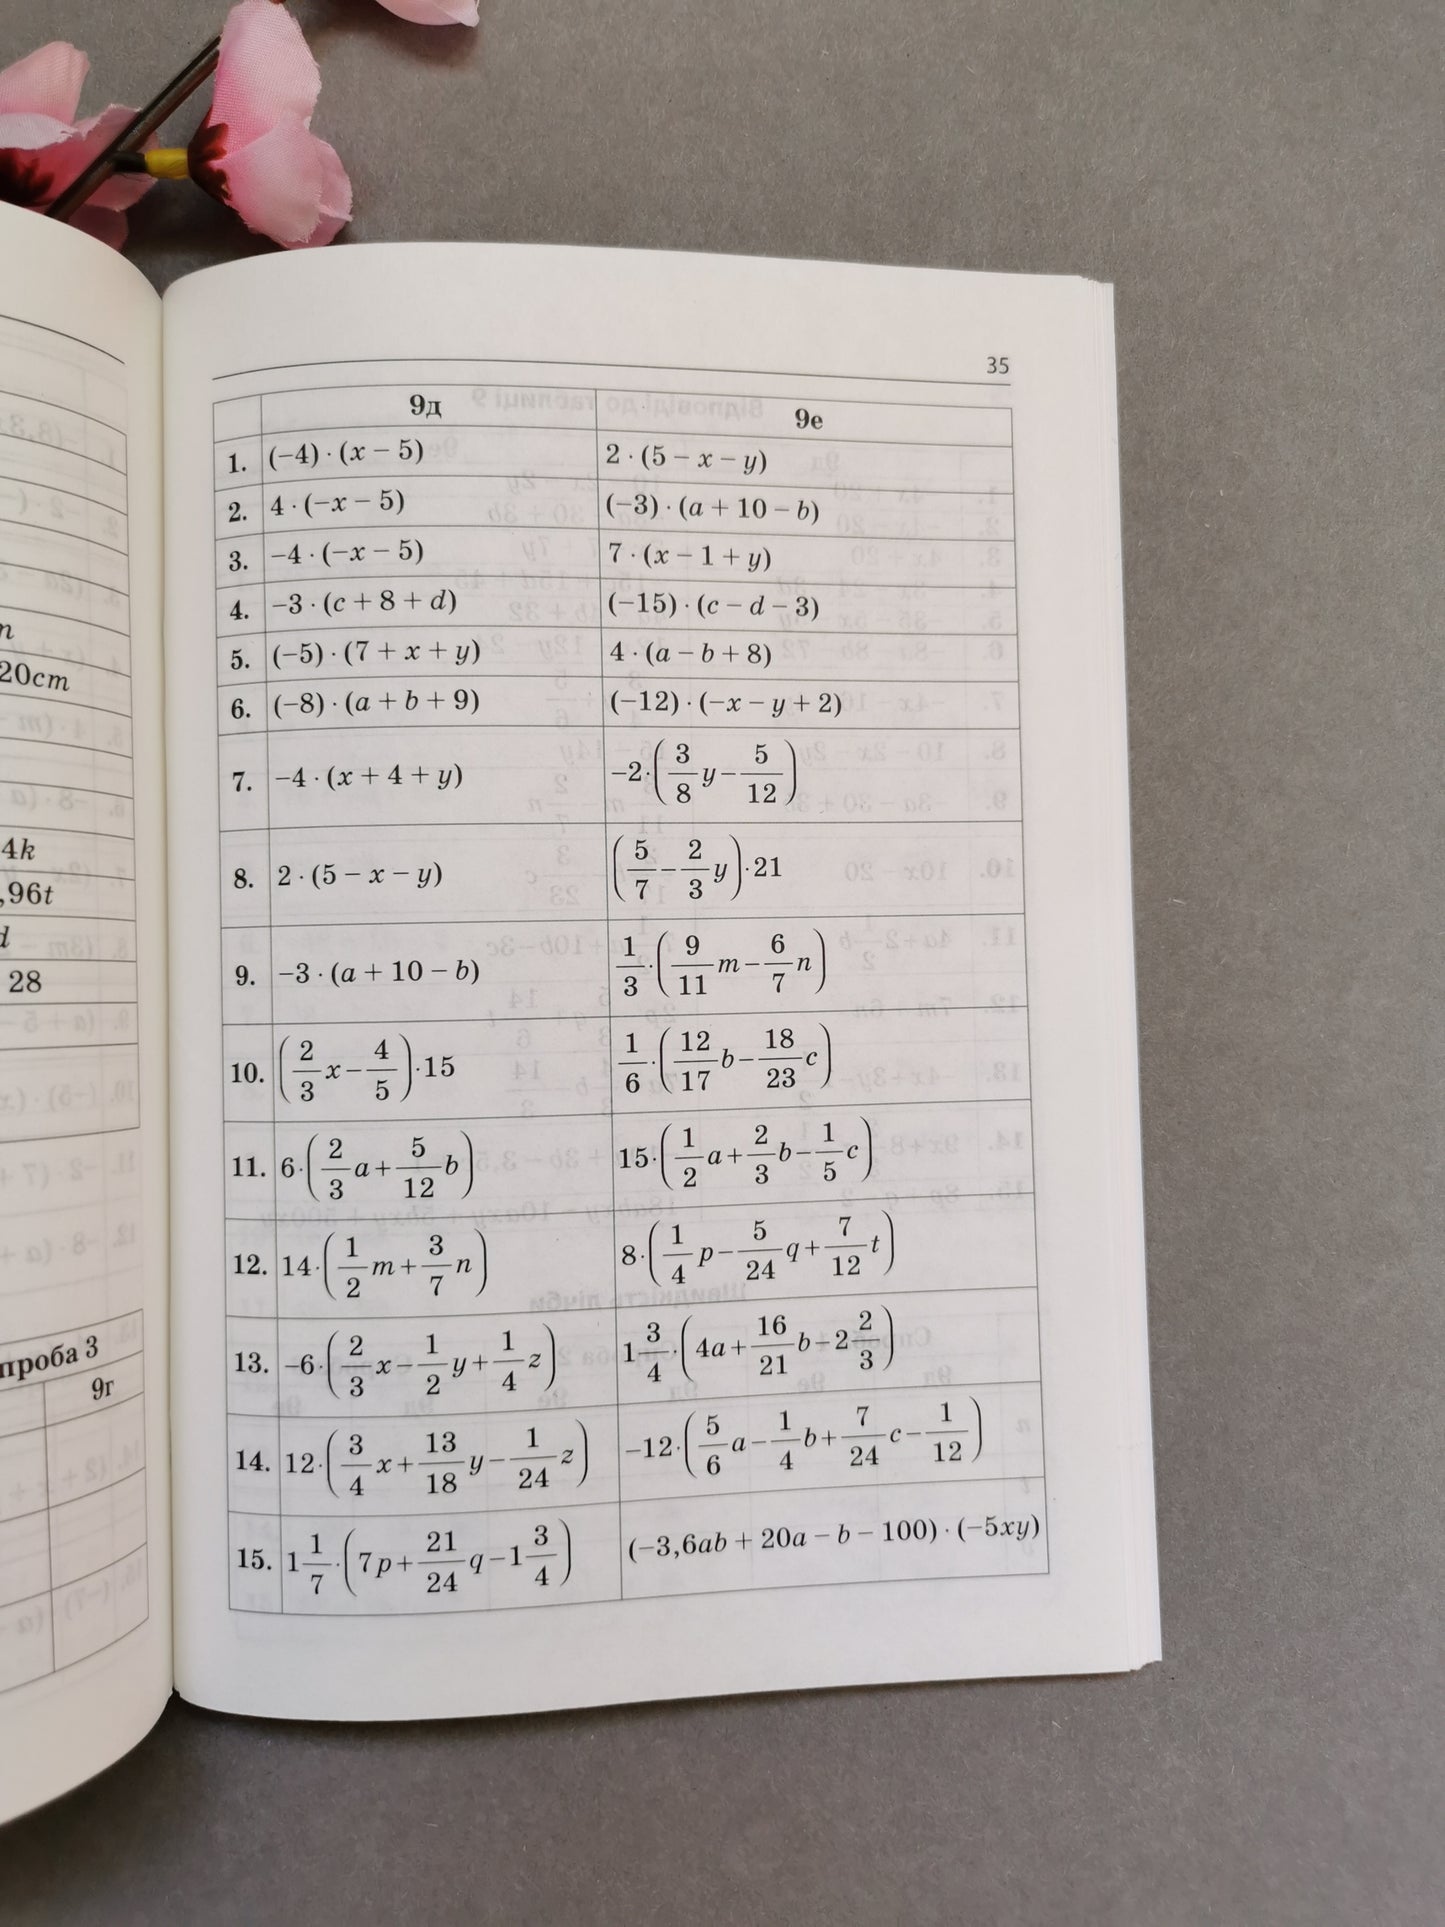 35
9д 9е
1. (−4) · (x − 5) 2 · (5 − x − y)
2. 4 · (−x − 5) (−3) · (a + 10 − b)
3. −4 · (−x − 5) 7 · (x − 1 + y)
4. −3 · (c + 8 + d) (−15) · (c − d − 3)
5. (−5) · (7 + x + y) 4 · (a − b + 8)
6. (−8) · (a + b + 9) (−12) · (−x − y + 2)
7. −4 · (x + 4 + y) −2·(3/8 y − 5/12)
8. 2 · (5 − x − y) (5/7 − 2/3 y)·21
9. −3 · (a + 10 − b) 1/3·(9/11 m − 6/7 n)
10. (2/3 x − 4/5)·15 1/6·(12/17 b − 18/23 c)
11. 6·(2/3 a + 5/12 b) 15·(1/2 a + 2/3 b − 1/5 c)
12. 14·(1/2 m + 3/7 n) 8·(1/4 p − 5/24 q + 7/12 t)
13. −6·(2/3 x − 1/2 y + 1/4 z) 1 3/4·(4a + 16/21 b − 2 2/3)
14. 12·(3/4 x + 13/18 y − 1/24 z) −12·(5/6 a − 1/4 b + 7/24 c − 1/12)
15. 1 1/7·(7p + 21/24 q − 1 3/4) (−3,6ab + 20a − b − 100) · (−5xy)
20cm
4k
,96t
28
проба 3
9г